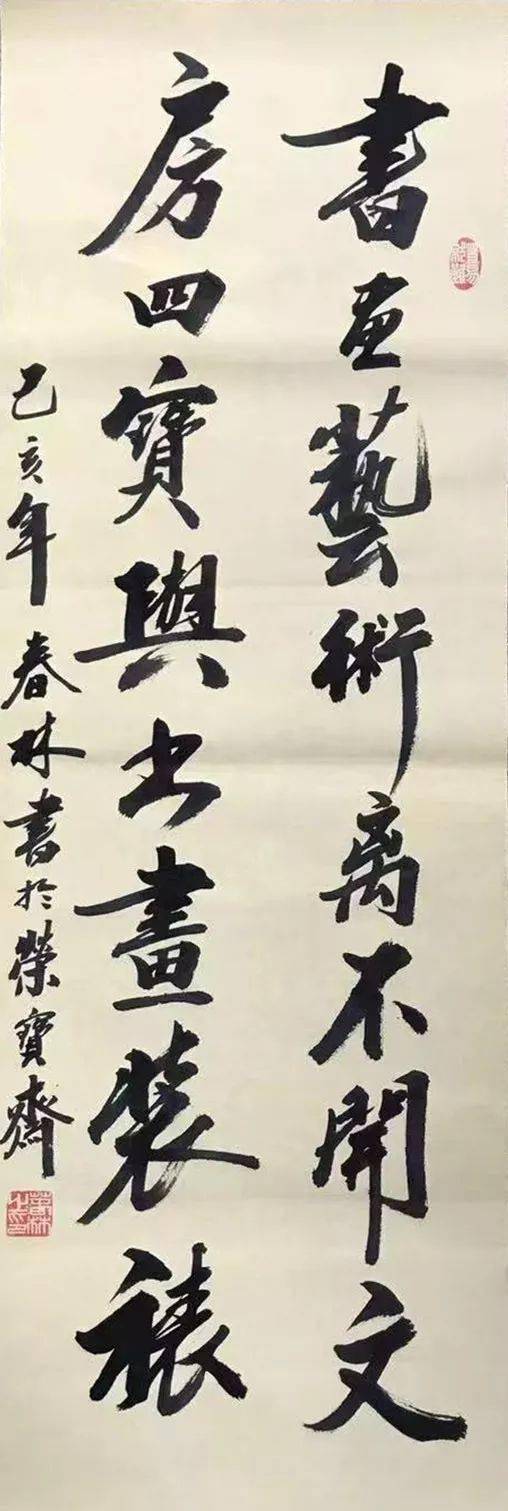 書画藝術離不開文
房四寶與书畫裝裱
己亥年春林書於榮寶齋